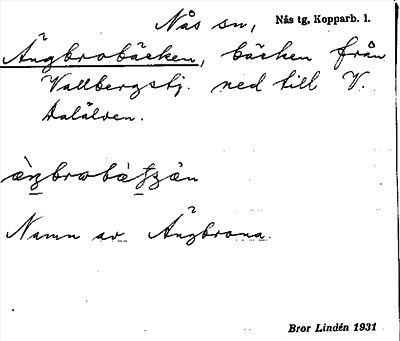 Nås sn, Nås tg, Kopparb. l.
Ängbrobäcken, bäcken från
Vallbergstj. ned till V.
Dalälven.
Namn av Ängbrona.
Bror Lindén 1931